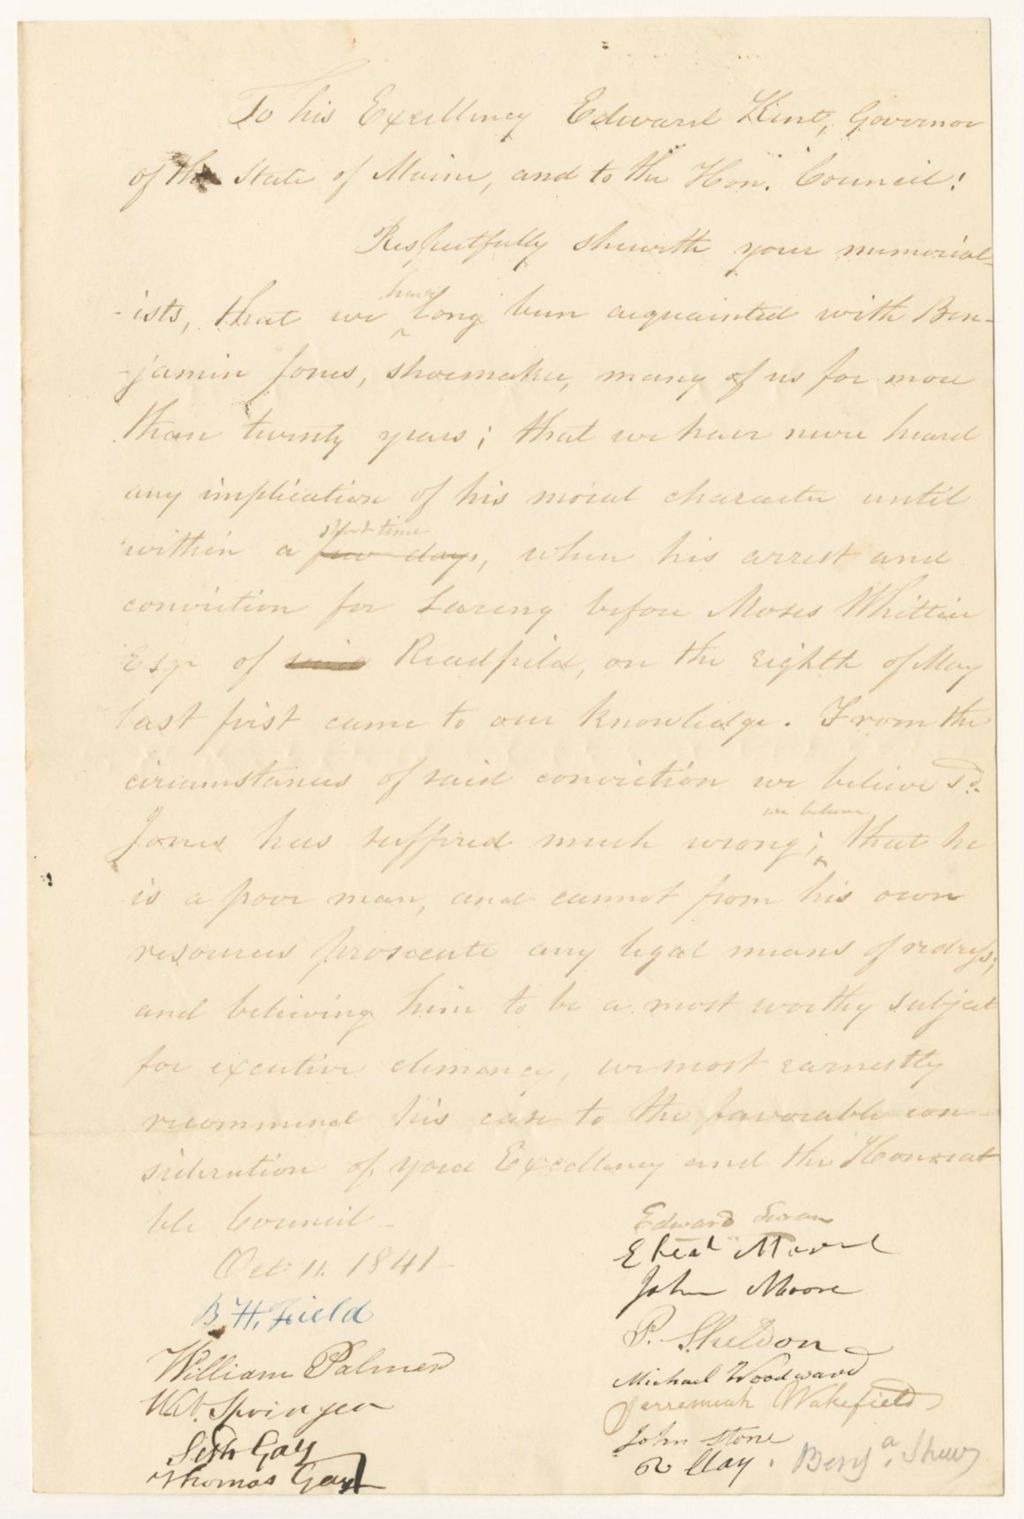 To his Excellency Edward Kent, Governor
of the State of Maine, and to the Hon. Council!
Respectfully sheweth your memorial-
-ists, that we have long been acquainted with Ben-
-jamin Jones, shoemaker, many of us for more
than twenty years; that we have never heard
any implication of his moral character until
within a few days, short time when his arrest and
conviction for before Moses Whittier
Esqr of said Readfield, on the eighth of May
last first came to our knowledge. From the
circumstances of said conviction we believe sd.
Jones has suffered much wrong; we believe that he
is a poor man, and cannot from his own
resources prosecute any legal means of redress;
and believing him to be a most worthy subject
for excutive clemancy, we most earnestly
recommend his case to the favorable con-
sideration of your Excellency and the Honorab
ble Council -
Oct. 11. 1841 -
B. H. Field
William Palmer
Wm. Springer
Seth Gay
Thomas Gay
Edward Swan
John Moore
P. Sheldon
Michael Woodward
Jerremiah Wakefield
John Stone
R Clay.
Benja. Shaw